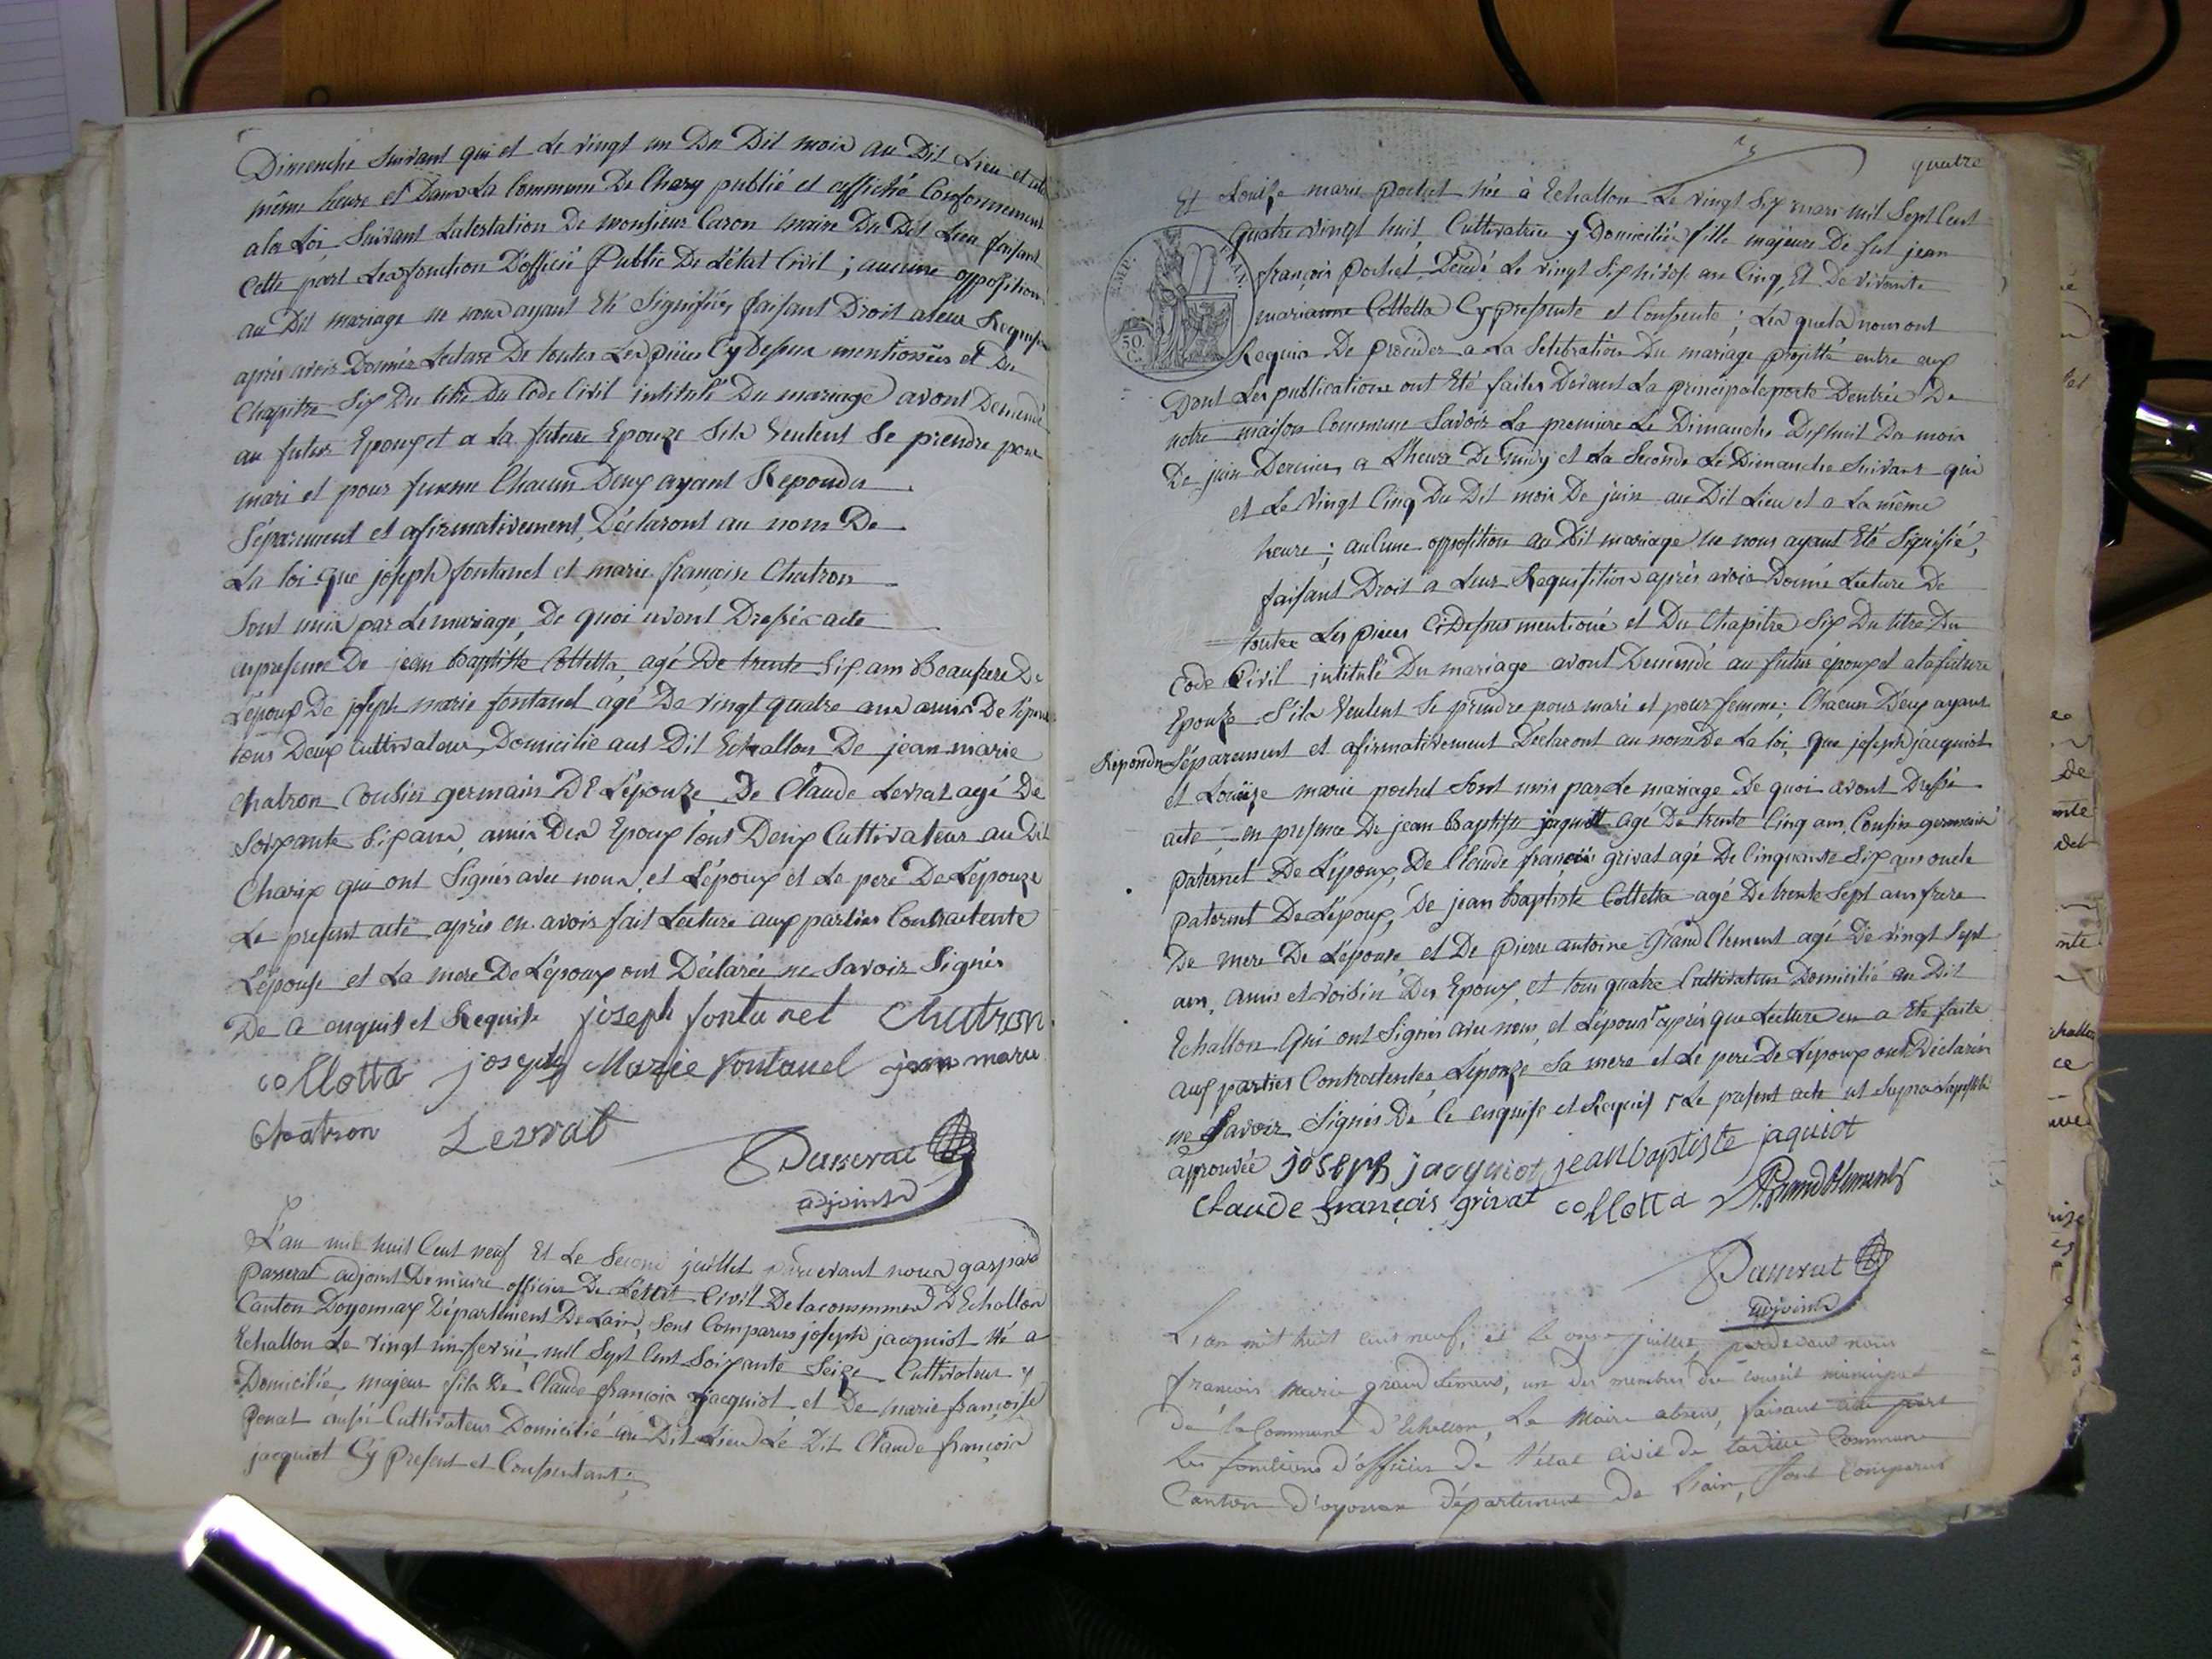 Dimenche suivant qui et Le vingt un Du Dit mois au Dit Lieu et
même heure et Dans La Commune De Chary publié et affiché Conformement
a la Loi, suivant Latestation De monsieur Caron maire Du Dit Lieu faisant
Cette part Les fonction D'officié Public De L'état Civil ; aucune opposition
au Dit mariage ne nous ayant Eté Signifiés, faisant Droit a leur Requise
après avoir Donnée Lecture De toutes Les pièces Cy Dessus mentionnées et Du
Chapitre Six Du titre Du Code Civil intitulé Du mariage avont Demendé
au futur Epoux et a La future Epouze Sils Veulent Se prendre pour
mari et pour femme Chacun Deux ayant Repondu
Séparement et afirmativement, Déclaront au nom De
La loi que joseph fontanet et marie françoise Chatron
Sont unis par Le mariage, De quoi avont Dressée acte
en presence De jean Baptiste Colletta, agé De trente Six ans Beaufrere De
L'époux De joseph marie fontanet agé De vingt quatre ans amis De l'époux
tous Deux Cultivateurs Domicilié aus Dit Echallon De jean marie
Chatron Cousin germain DE L'épouze De Claude Levrat agé De
Soixante Six ans, amis Des Epoux tous Deux Cultivateur au Dit
Charix qui ont Signés avec nous, et L'époux et Le pere De L'épouze
Le present acte après en avoir fait Lecture aux parties Contractente
L'épouse et La mere De L'époux ont Déclarée ne Savoir Signés
De a enquis et Requise joseph fontanet Chatron
collotta joseph Marie fontanel jean marie
Chatron Levrat
Passerat
adjoint
L'an mil huit Cent neuf Et Le Second juillet pardevant nous gaspard
Passerat adjoint De maire officier De L'état Civil De la commune D'Echallon
Canton Doyonnax Département De Lain, Sont Comparus joseph jacquiot Né a
Echallon Le vingt un fevrié mil Sept Cent Soixante Seize Cultivateur y
Domicilié, majeur fils De Claude françois jacquiot et De marie françoise
Ponat aussi Cultivateurs Domicilié au Dit Lieu Le Dit Claude françois
jacquiot Cy Present et Consentant ;
quatre
Et Louise marie pochet Née à Echallon Le vingt Six mars mil Sept Cent
quatre vingt huit, Cultivatrice y Domiciliée fille majeure De fut jean
françois pochet Décédé Le vingt Six an Cinq, Et De vivante
marianne Colletta Cy presente et Consente ; Les quels nous ont
Requis De proceder a La Selebration Du mariage projetté entre eux
Dont Les publications ont Eté faites Devant La principale porte Dentrée De
notre maison Commune Savoir La premiere Le Dimanche Dixhuit Du mois
De juin Dernier a L'heure De midy et La Seconde Le Dimanche Suivant qui
et Le vingt Cinq Du Dit mois De juin au Dit Lieu et a La même
heure ; auCune opposition au Dit mariage ne nous ayant Eté Signifié,
faisant Droit a Leur Requisition après avoir Donné Lecture De
toutes Les pieces Ci Dessus mentioné et Du Chapitre Six Du titre Du
Code Civil intitulé Du mariage avont Demendé au futur époux et a la future
Epouze S'ils Veulent Se prendre pour mari et pour femme ; Chacun Deux ayant
Repondu Séparement et afirmativement Déclaront au nom De La loi que joseph jacquiot
et Louize marie pochet Sont unis par Le mariage De quoi avont Dressé
acte en presence De jean Baptiste jaquiott agé De trente Cinq ans, Cousin germain
paternel De L'époux, De Claude françois grivat agé De Cinquante Six ans oncle
paternel De L'époux, De jean Baptiste Colletta agé De trente Sept ans frere
De mere De L'épouse et De pierre antoine Grand Clement agé De vingt Sept
ans, amis et voisin Des Epoux, et tous quatre Cultivateurs Domicilié au Dit
Echallon Qui ont Signés avec nous, et L'époux après que Lecture en a Eté faite
aux parties Contractentes, L'épouze Sa mere et Le pere De L'époux ont Déclarés
ne Savoir Signés De Ce enquise et Requis Le present acte ut Supra
approuvée joseph jacquiot jean baptiste jaquiot
Claude françois grivat collotta Grandclement
Passerat
adjoint
L'an mil huit cent neuf, et le onze juillet, pardevant nous
francois Marie grandclement, un des membres du conseil municipal
de la Commune d'Echallon, Le Maire absent, faisant cette part
les fonctions d'officier de l'état civil de ladite Commune
Canton d'oyonnax département de Lain, Sont Comparus